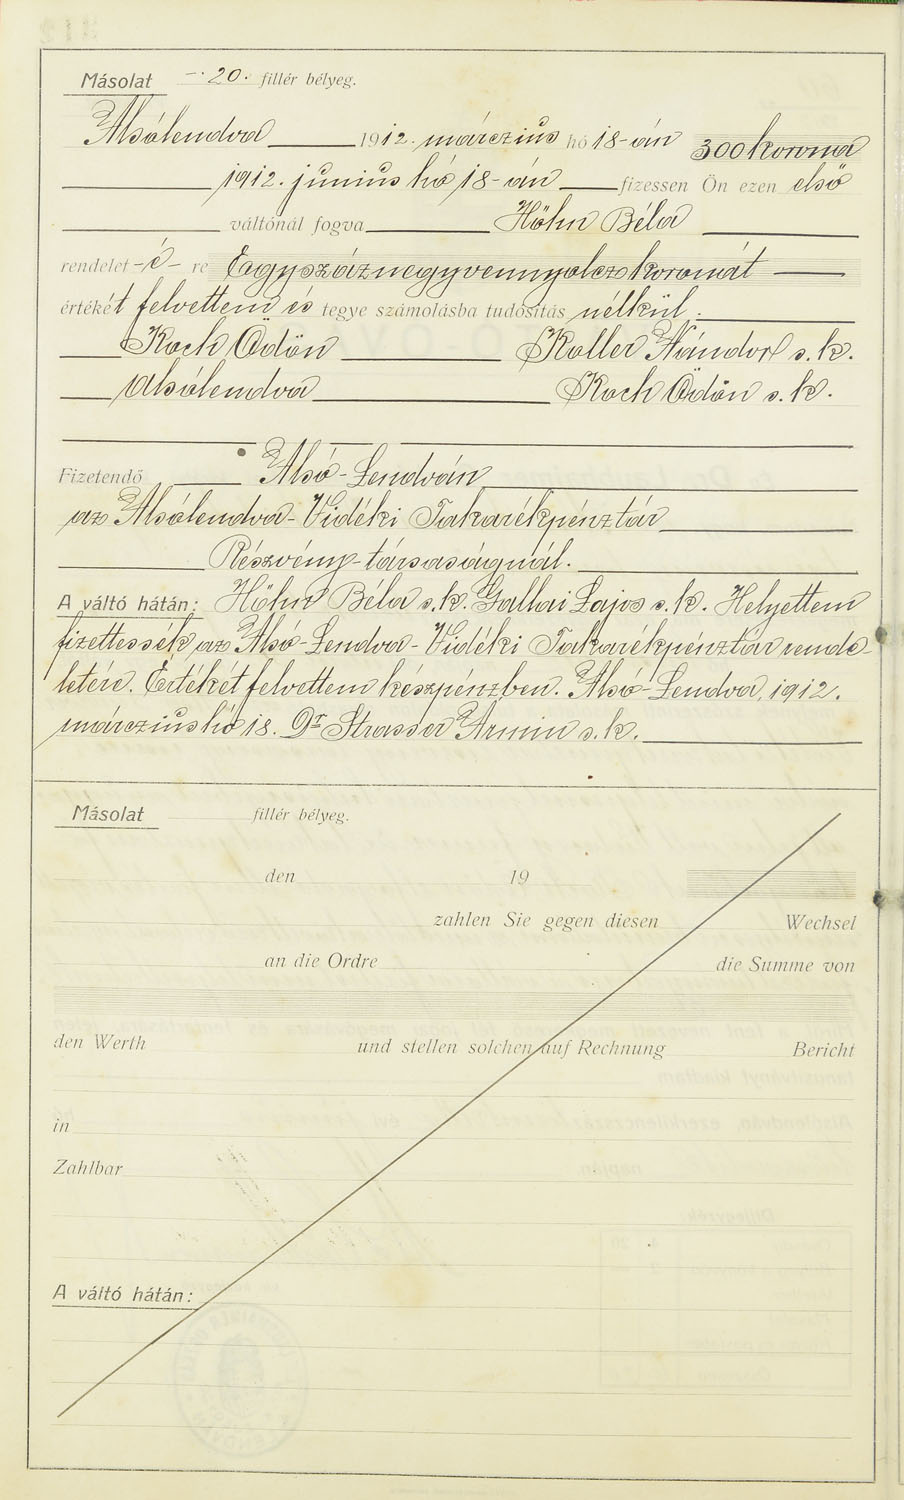 Másolat -. 20. fillér bélyeg.
Alsólendva 1912. márczius hó 18-án 300 korona
1912. junius hó 18-án fizessen Ön ezen első
váltónál fogva Höhn Béla
rendelet -é- re Egyszáznegyvennyolcz koronát
értékét felvettem és tegye számolásba tudósítás nélkül.
Koch Ödön Koller Nándor s. k.
Alsólendva Koch Ödön s. k.
Fizetendő Alsó-Lendván
az Alsólendva-Vidéki Takarékpénztár
Részvény-társaságnál.
A váltó hátán: Höhn Béla s. k. Gallai Lajos s. k. Helyettem
fizettessék az Alsó-Lendva-Vidéki Takarékpénztár rende-
letére. Értékét felvettem készpénzben. Alsó-Lendva, 1912.
márczius hó 18. Dr Strasser Ármin s. k.
Másolat fillér bélyeg.
den 19
zahlen Sie gegen diesen Wechsel
an die Ordre die Summe von
den Werth und stellen solchen auf Rechnung Bericht
in
Zahlbar
A váltó hátán: